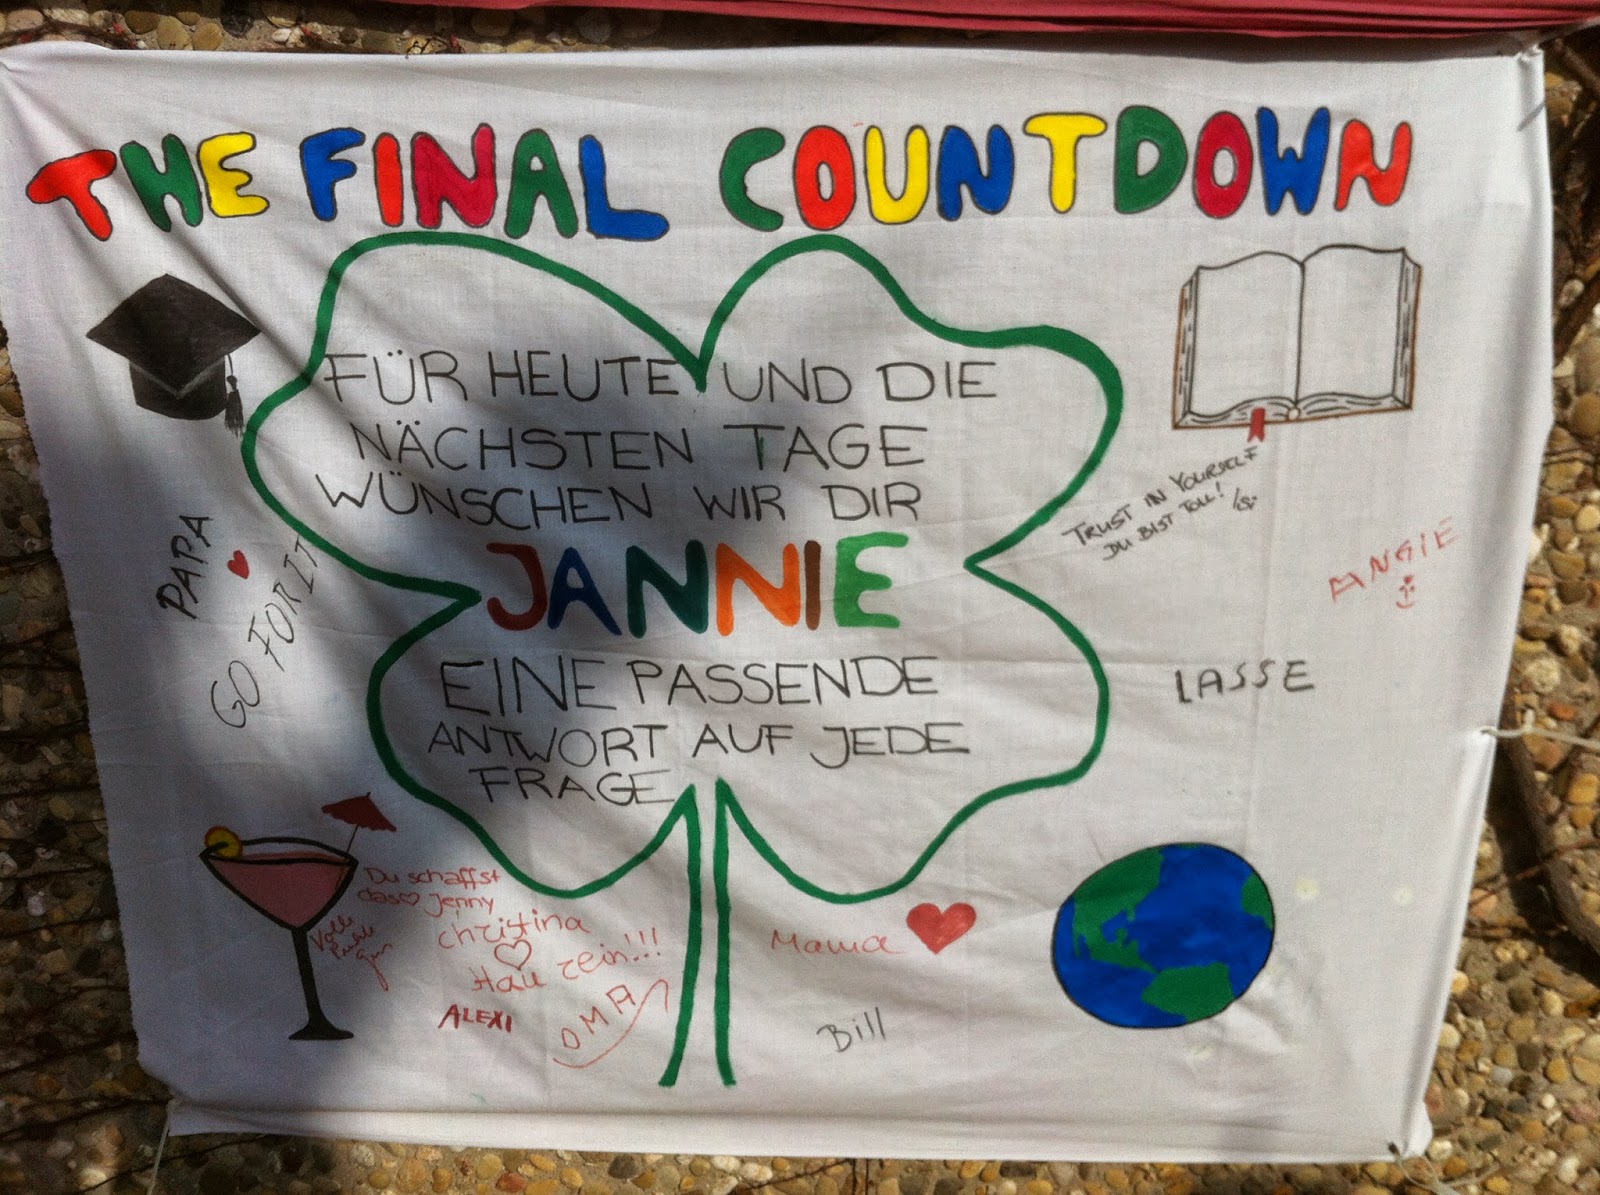 THE FINAL COUNTDOWN
FÜR HEUTE UND DIE
NÄCHSTEN TAGE
WÜNSCHEN WIR DIR
JANNIE
EINE PASSENDE
ANTWORT AUF JEDE
FRAGE
PAPA
GO FOR IT
TRUST IN YOURSELF
DU BIST TOLL!
ANGIE
LASSE
Du schaffst
das Jenny
Christina
Hau rein!!!
ALEXI
OMA
Mama
Bill